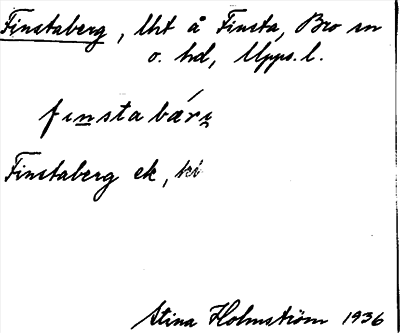 Finstaberg, lht å Finsta, Bro sn
o. hd, Upps. l.
finstabæri
Finstaberg ek,
Stina Holmström 1936